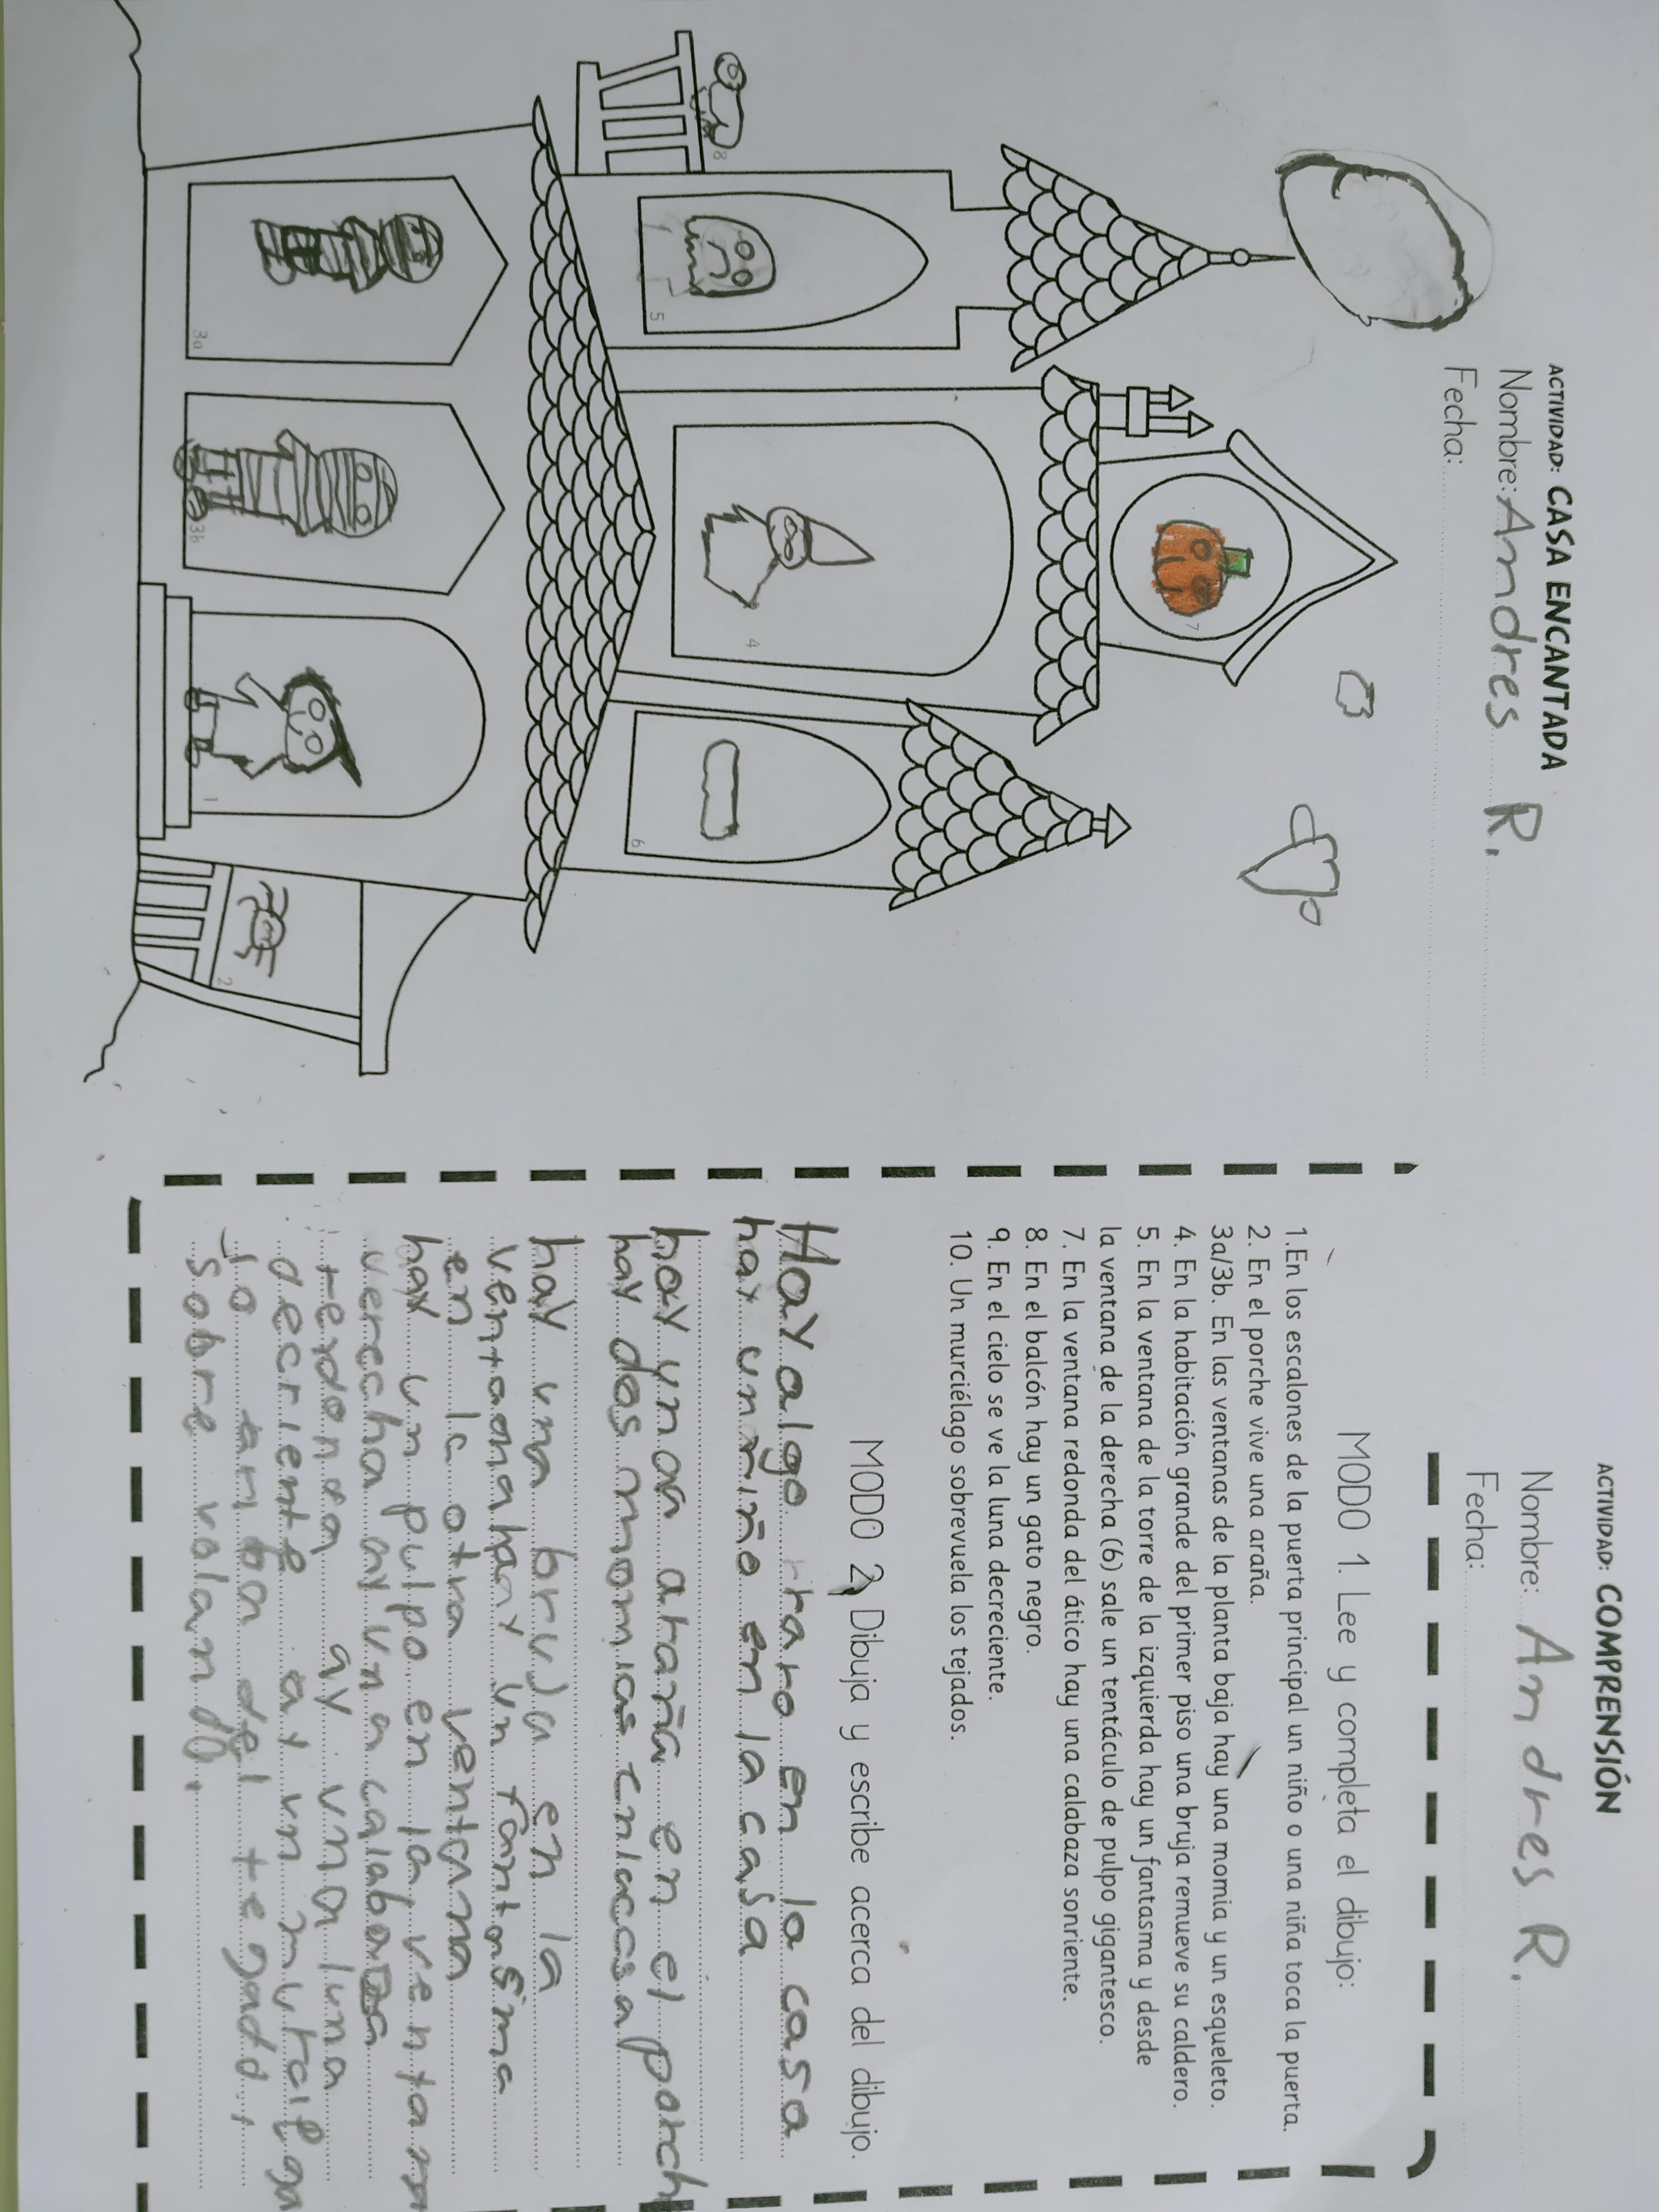 ACTIVIDAD: CASA ENCANTADA
Nombre: Andres R.
Fecha:
8
5
3a
3b
4
7
1
6
2
ACTIVIDAD: COMPRENSIÓN
Nombre: Andres R.
Fecha:
MODO 1. Lee y completa el dibujo:
1.En los escalones de la puerta principal un niño o una niña toca la puerta.
2. En el porche vive una araña.
3a/3b. En las ventanas de la planta baja hay una momia y un esqueleto.
4. En la habitación grande del primer piso una bruja remueve su caldero.
5. En la ventana de la torre de la izquierda hay un fantasma y desde
la ventana de la derecha (6) sale un tentáculo de pulpo gigantesco.
7. En la ventana redonda del ático hay una calabaza sonriente.
8. En el balcón hay un gato negro.
9. En el cielo se ve la luna decreciente.
10. Un murciélago sobrevuela los tejados.
MODO 2, Dibuja y escribe acerca del dibujo.
Hay algo raro en la casa
hay un niño en la casa
hay una araña en el porch
hay dos momias en laccsa
hay una bruja en la
ventaana hay un fantasma
en la otra ventana
hay un pulpo en la ventana
verecha ay una calabaza
redonda ay una luna
decriente ay un murcielaga
sobre volando.